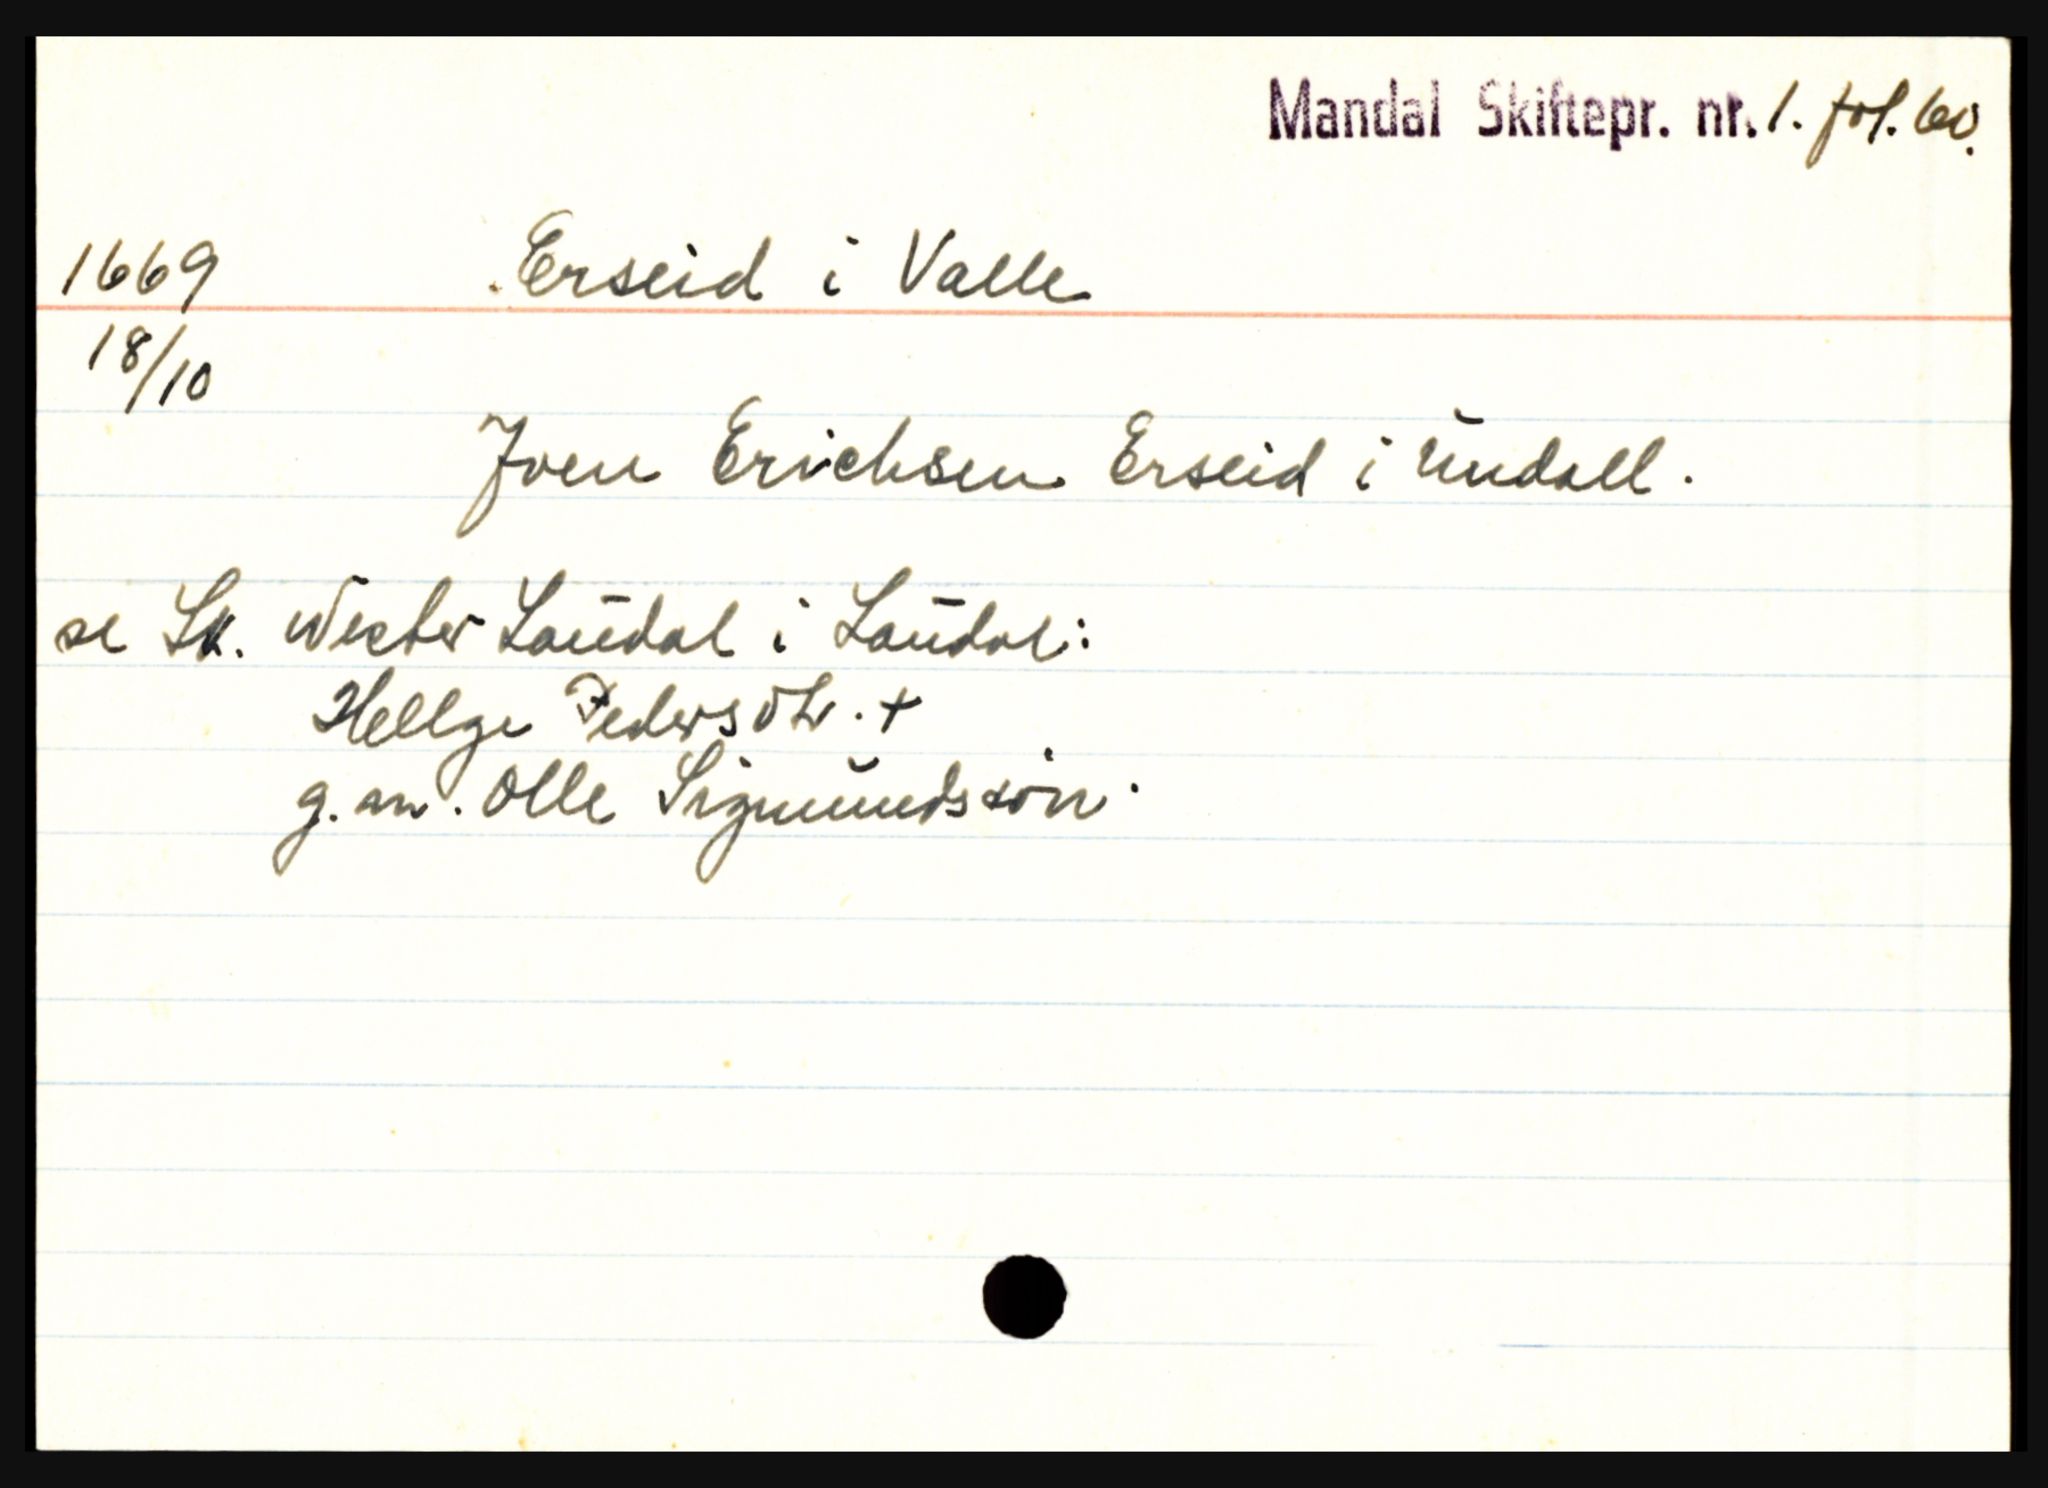 Mandal Skiftepr. nr. 1. fol. 60.
1669 Erseid i Valle
18/10
Iven Erichsen Erseid i Undall.
se Sk. Wester Laudal i Laudal:
Hellge Pedersdtr. +
g.m. Olle Sigmundssøn.